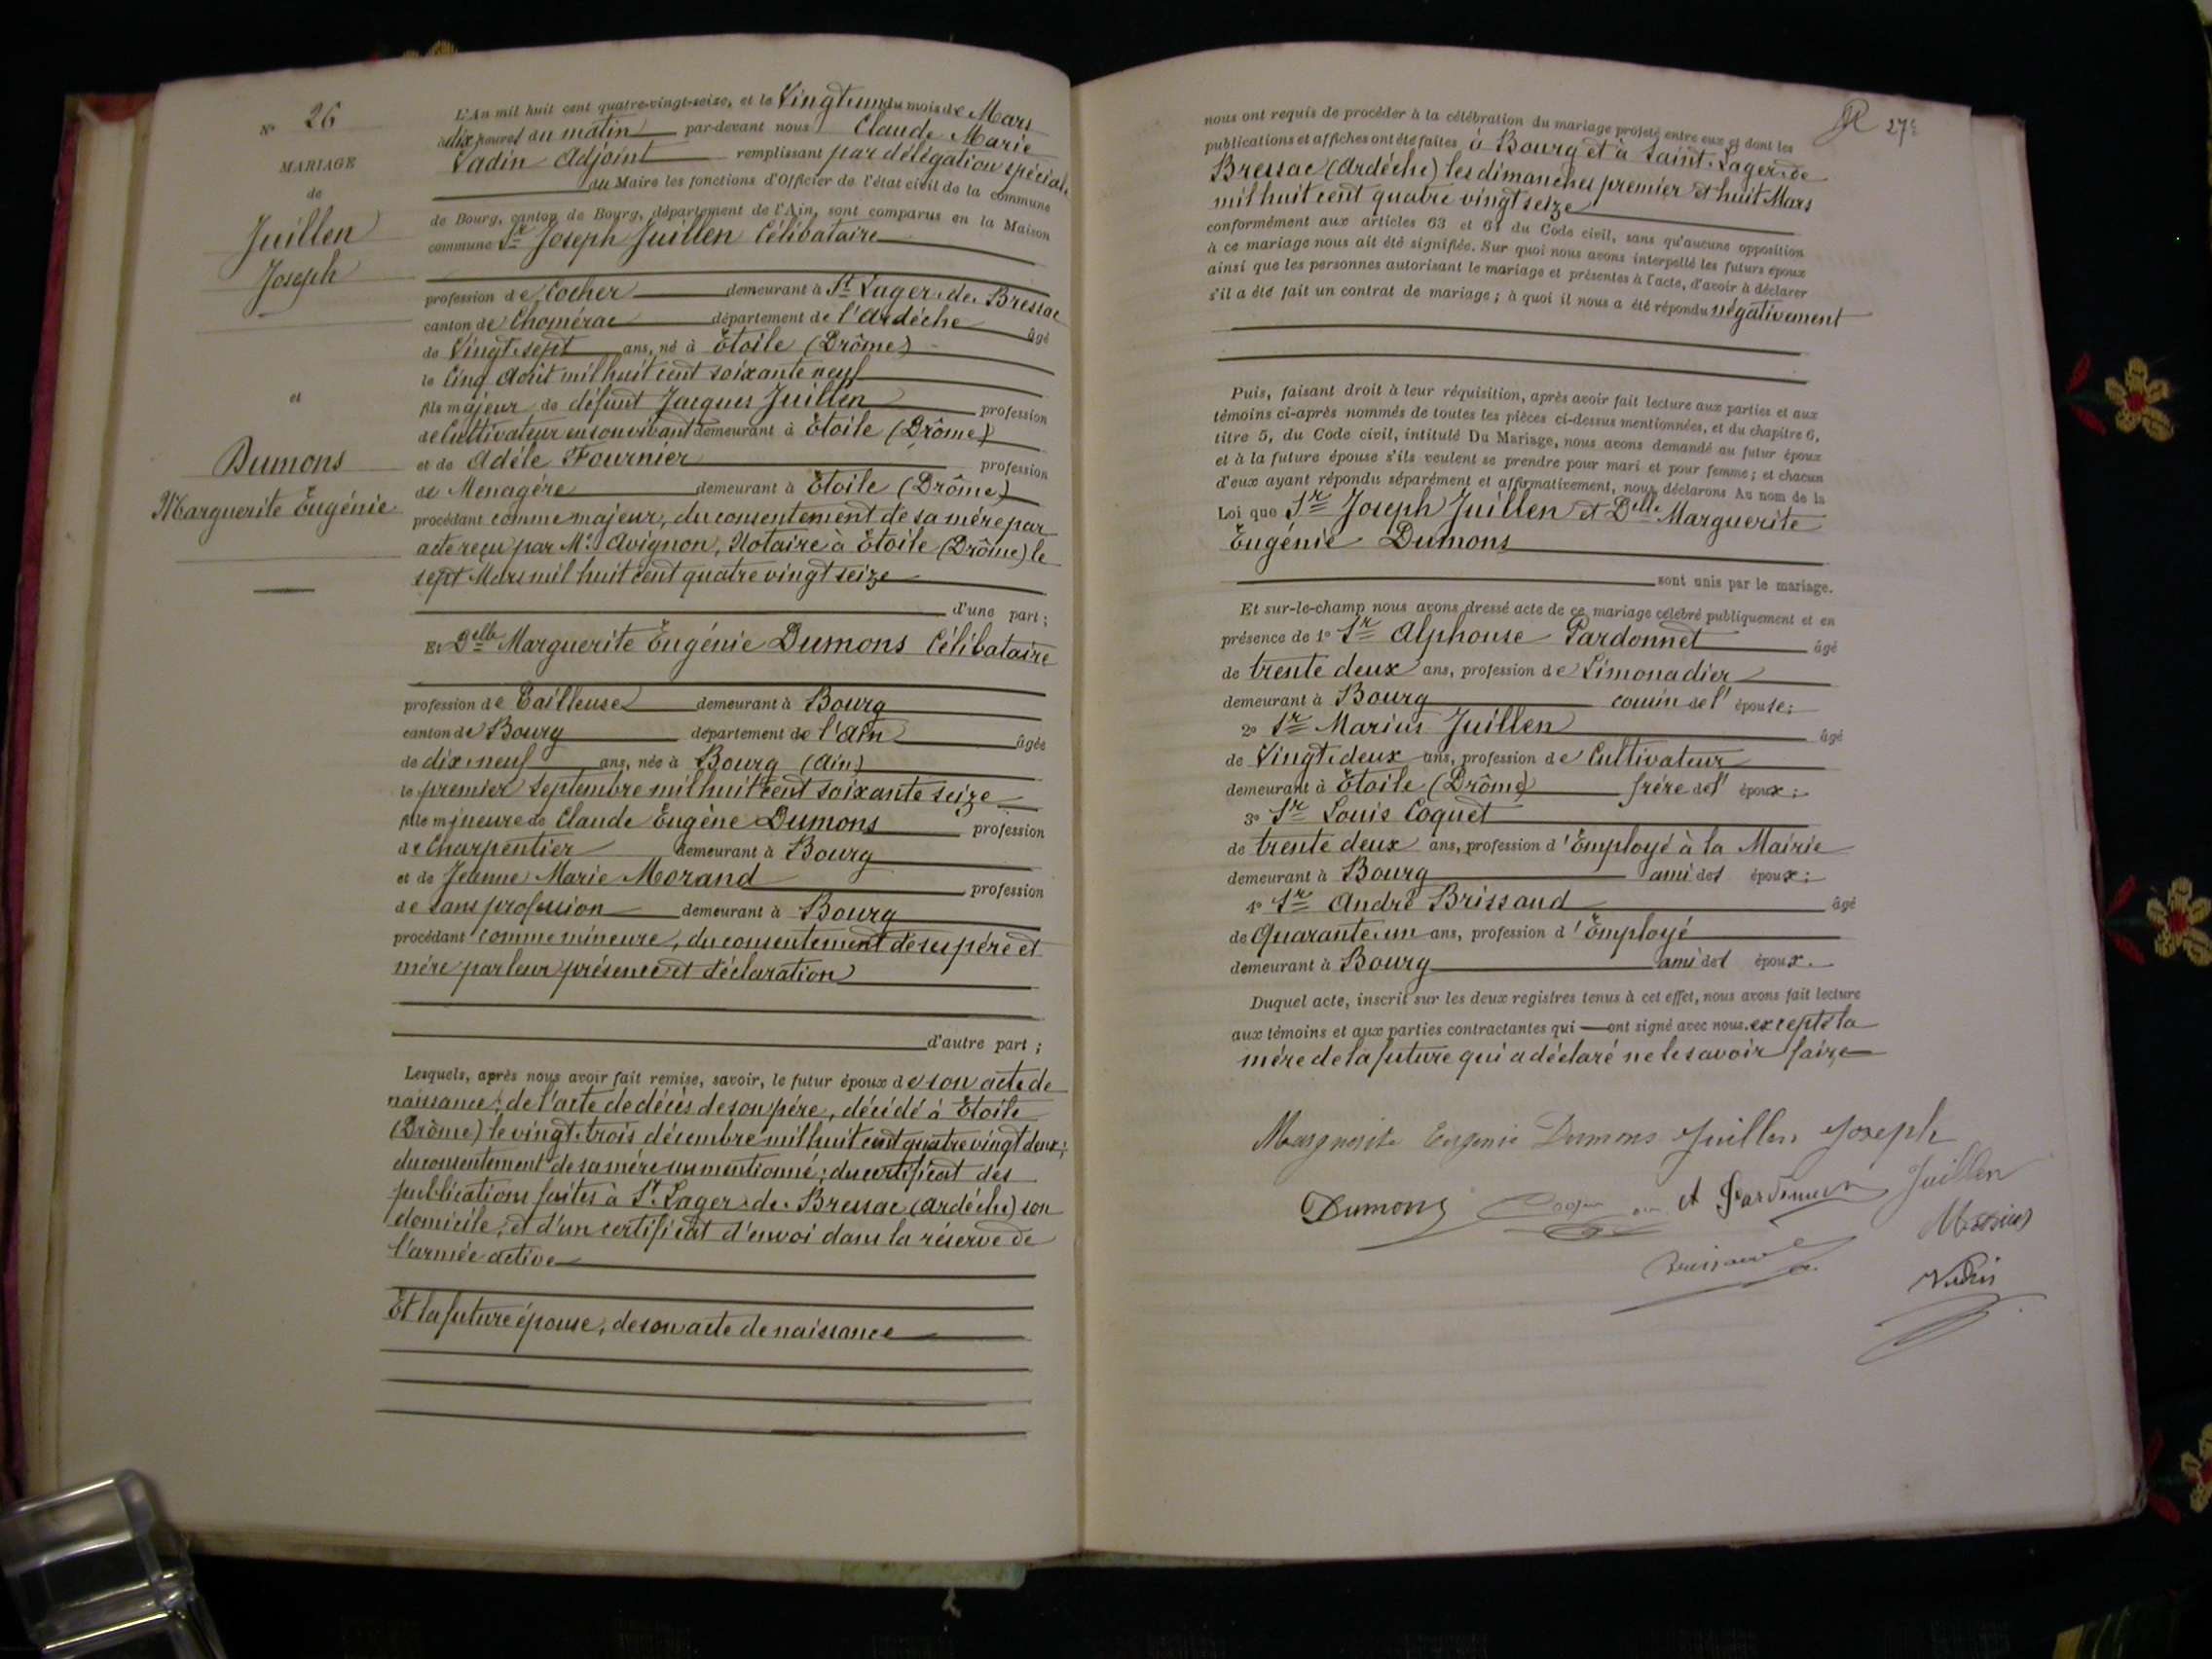 N° 26
MARIAGE
de
Juillen
Joseph
et
Dumons
Marguerite Eugénie
L'An mil huit cent quatre-vingt-seize, et le Vingt un du mois de Mars
à dix heures du matin par-devant nous Claude Marie
Vadin Adjoint remplissant par délégation spéciale
du Maire les fonctions d'Officier de l'état civil de la commune
de Bourg, canton de Bourg, département de l'Ain, sont comparus en la Maison
commune Sr Joseph Juillen Célibataire
profession de Cocher demeurant à St Lager-de-Bressac
canton de Chomérac département de l'Ardèche âgé
de Vingt-sept ans, né à Etoile (Drôme)
le Cinq Août mil huit cent soixante neuf
fils majeur de défunt Jacques Juillen profession
de Cultivateur en son vivant demeurant à Etoile (Drôme)
et de Adèle Fournier profession
de Menagère demeurant à Etoile (Drôme)
procédant comme majeur, du consentement de sa mère par
acte reçu par Me Avignon, Notaire à Etoile (Drôme) le
sept Mars mil huit cent quatre vingt seize
d'une part ;
Et Delle Marguerite Eugénie Dumons Célibataire
profession de Tailleuse demeurant à Bourg
canton de Bourg département de l'Ain âgée
de dix-neuf ans, née à Bourg (Ain)
le premier Septembre mil huit cent soixante seize
fille mineure de Claude Eugène Dumons profession
de Charpentier demeurant à Bourg
et de Jeanne Marie Morand profession
de sans profession demeurant à Bourg
procédant comme mineure, du consentement de ses père et
mère par leur présence et déclaration
d'autre part ;
Lesquels, après nous avoir fait remise, savoir, le futur époux de son acte de
naissance ; de l'acte de décès de son père, décédé à Etoile
(Drôme) le vingt-trois décembre mil huit cent quatre vingt deux ;
du consentement de sa mère sus mentionné ; du certificat des
publications faites à St Lager-de-Bressac (Ardèche) son
domicile ; et d'un certificat d'envoi dans la réserve de
l'armée active
Et la future épouse, de son acte de naissance
27e
nous ont requis de procéder à la célébration du mariage projeté entre eux et dont les
publications et affiches ont été faites à Bourg et à Saint-Lager-de
Bressac (Ardèche) les dimanches premier et huit Mars
mil huit cent quatre vingt seize
conformément aux articles 63 et 64 du Code civil, sans qu'aucune opposition
à ce mariage nous ait été signifiée. Sur quoi nous avons interpellé les futurs époux
ainsi que les personnes autorisant le mariage et présentes à l'acte, d'avoir à déclarer
s'il a été fait un contrat de mariage ; à quoi il nous a été répondu négativement
Puis, faisant droit à leur réquisition, après avoir fait lecture aux parties et aux
témoins ci-après nommés de toutes les pièces ci-dessus mentionnées, et du chapitre 6,
titre 5, du Code civil, intitulé Du Mariage, nous avons demandé au futur époux
et à la future épouse s'ils veulent se prendre pour mari et pour femme ; et chacun
d'eux ayant répondu séparément et affirmativement, nous déclarons Au nom de la
Loi que Sr Joseph Juillen et Delle Marguerite
Eugénie Dumons
sont unis par le mariage.
Et sur-le-champ nous avons dressé acte de ce mariage célébré publiquement et en
présence de 1° Sr Alphonse Pardonnet âgé
de trente deux ans, profession de Limonadier
demeurant à Bourg cousin de l'épouse ;
2° Sr Marius Juillen âgé
de Vingt-deux ans, profession de Cultivateur
demeurant à Etoile (Drôme) frère de l'époux ;
3° Sr Louis Coquet
de trente deux ans, profession d'Employé à la Mairie
demeurant à Bourg ami des époux ;
4° Sr André Brissaud âgé
de Quarante-un ans, profession d'Employé
demeurant à Bourg ami des époux.
Duquel acte, inscrit sur les deux registres tenus à cet effet, nous avons fait lecture
aux témoins et aux parties contractantes qui ont signé avec nous, excepté la
mère de la future qui a déclaré ne le savoir faire
Marguerite Eugenie Dumons Juillen Joseph
Dumons A Pardonnet Juillen
Marius
Brissaud
Vadin